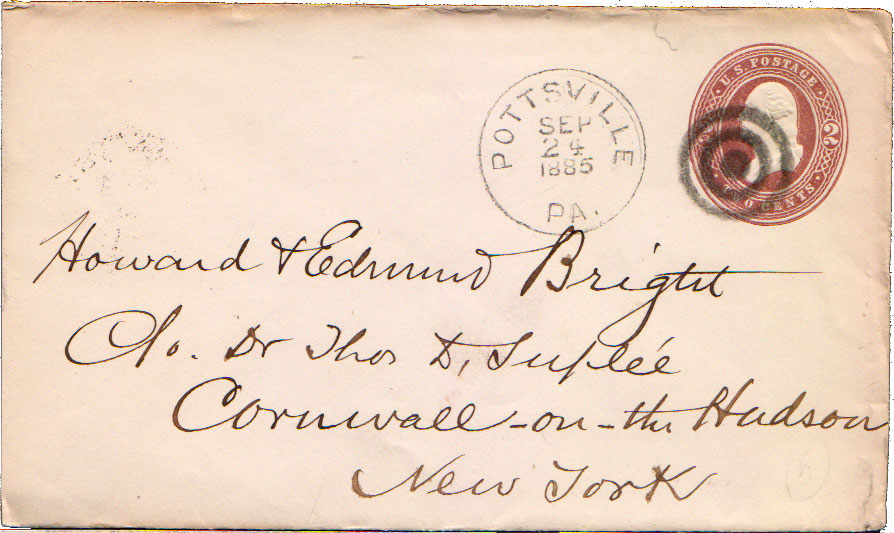 U.S. POSTAGE
2
TWO CENTS
POTTSVILLE
SEP
24
1885
PA.
Howard & Edmund Bright
C/o. Dr Thos D, Suplée
Cornwall-on-the Hudson
New York
5